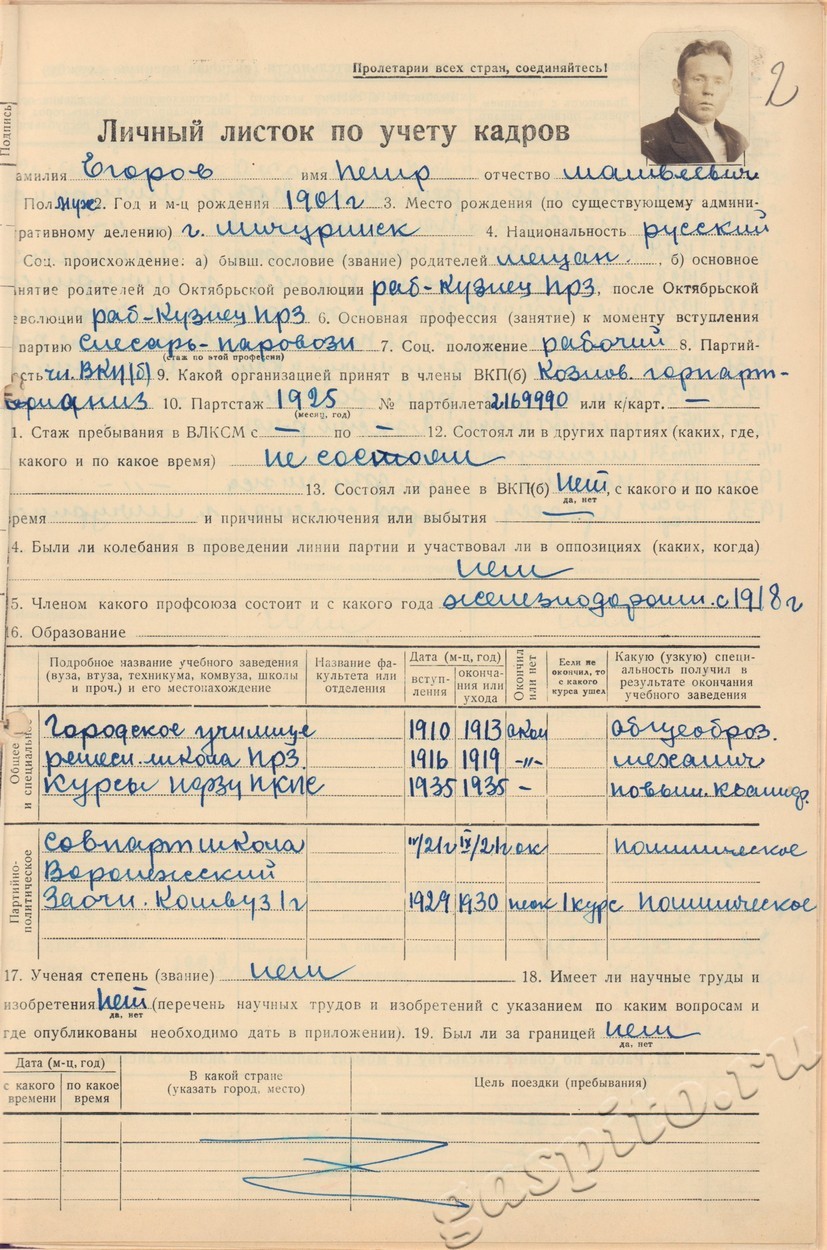 Пролетарии всех стран, соединяйтесь!
2
Подпись
Личный листок по учету кадров
амилия Егоров имя Петр отчество Матвеевич
Пол муж 2. Год и м-ц рождения 1901 г 3. Место рождения (по существующему админи-
ративному делению) г. Мичуринск 4. Национальность русский
Соц. происхождение: а) бывш. сословие (звание) родителей мещан., б) основное
нятие родителей до Октябрьской революции раб-Кузнец ПРЗ, после Октябрьской
еволюции раб-Кузнец ПРЗ 6. Основная профессия (занятие) к моменту вступления
партию Слесарь-паровозн 7. Соц. положение рабочий 8. Партий-
(стаж по этой профессии)
сть чл. ВКП(б) 9. Какой организацией принят в члены ВКП(б) Козлов. горпарт-
организ 10. Партстаж 1925 № партбилета 2169990 или к/карт. —
(месяц, год)
1. Стаж пребывания в ВЛКСМ с — по — 12. Состоял ли в других партиях (каких, где,
какого и по какое время) не состоял
13. Состоял ли ранее в ВКП(б) Нет, с какого и по какое
да, нет
ремя и причины исключения или выбытия —
4. Были ли колебания в проведении линии партии и участвовал ли в оппозициях (каких, когда)
нет
5. Членом какого профсоюза состоит и с какого года железнодорожн. с 1918 г
16. Образование
Подробное название учебного заведения (вуза, втуза, техникума, комвуза, школы и проч.) и его местонахождение
Название факультета или отделения
Дата (м-ц, год)
вступления
окончания или ухода
Окончил или нет
Если не окончил, то с какого курса ушел
Какую (узкую) специальность получил в результате окончания учебного заведения
Общее и специальное
Городское училище 1910 1913 окон общеобраз.
ремесл. школа ПРЗ. 1916 1919 -"- механич
Курсы 1935 1935 - повыш. квалифр.
Партийно-политическое
Совпартшкола IV/21г IX/21г ок политическое
Воронежский
Заочн. Комвуз 1г 1929 1930 неок 1 курс политическое
17. Ученая степень (звание) нет 18. Имеет ли научные труды и
изобретения нет (перечень научных трудов и изобретений с указанием по каким вопросам и
да, нет
где опубликованы необходимо дать в приложении). 19. Был ли за границей нет
да, нет
Дата (м-ц, год)
с какого времени
по какое время
В какой стране (указать город, место)
Цель поездки (пребывания)
gaspito.ru